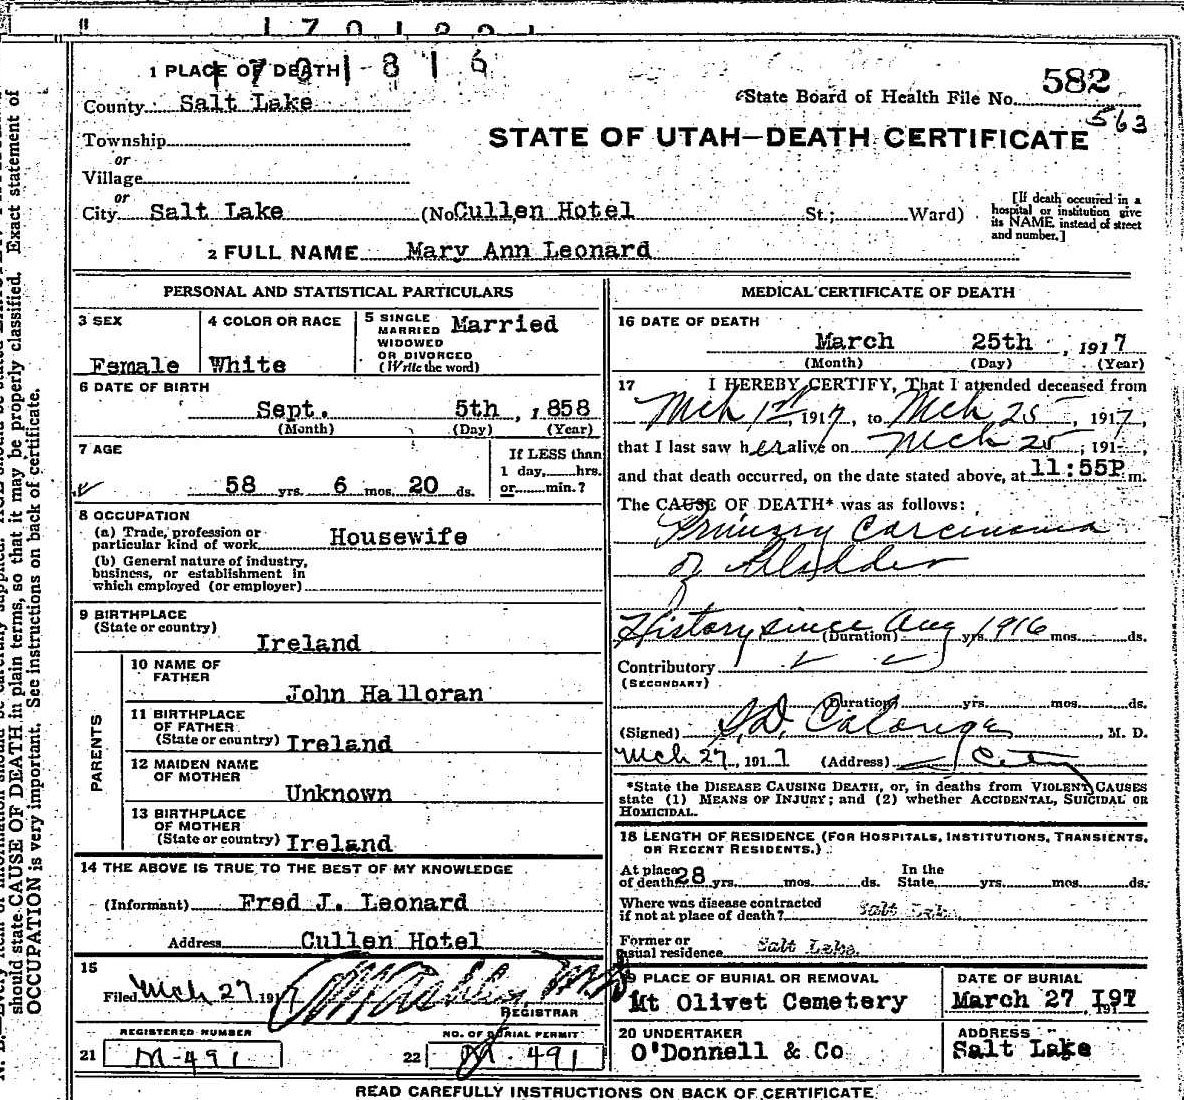 1 PLACE OF DEATH
1701816
County Salt Lake
State Board of Health File No. 582
563
Township
STATE OF UTAH—DEATH CERTIFICATE
or
Village
or
City Salt Lake (No Cullen Hotel St.; Ward)
[If death occurred in a
hospital or institution give
its NAME instead of street
and number.]
2 FULL NAME Mary Ann Leonard
PERSONAL AND STATISTICAL PARTICULARS
3 SEX
Female
4 COLOR OR RACE
White
5 SINGLE
MARRIED
WIDOWED
OR DIVORCED
(Write the word)
Married
6 DATE OF BIRTH
Sept. 5th, 1858
(Month) (Day) (Year)
7 AGE
58 yrs. 6 mos. 20 ds.
If LESS than
1 day, hrs.
or min.?
8 OCCUPATION
(a) Trade, profession or
particular kind of work Housewife
(b) General nature of industry,
business, or establishment in
which employed (or employer)
9 BIRTHPLACE
(State or country)
Ireland
PARENTS
10 NAME OF
FATHER
John Halloran
11 BIRTHPLACE
OF FATHER
(State or country) Ireland
12 MAIDEN NAME
OF MOTHER
Unknown
13 BIRTHPLACE
OF MOTHER
(State or country) Ireland
14 THE ABOVE IS TRUE TO THE BEST OF MY KNOWLEDGE
(Informant) Fred J. Leonard
Address Cullen Hotel
15
Filed Mch 27 191
REGISTRAR
REGISTERED NUMBER
21 M-491
NO. OF BURIAL PERMIT
22 M-491
MEDICAL CERTIFICATE OF DEATH
16 DATE OF DEATH
March 25th, 1917
(Month) (Day) (Year)
17 I HEREBY CERTIFY, That I attended deceased from
Mch 1st, 1917, to Mch 25, 1917,
that I last saw her alive on Mch 25, 191
and that death occurred, on the date stated above, at 11:55P m.
The CAUSE OF DEATH* was as follows:
Primary Carcinoma
of Bladder
History since Aug 1916
(Duration) yrs. mos. ds.
Contributory
(SECONDARY)
(Duration) yrs. mos. ds.
(Signed) S.D. Calonge, M. D.
Mch 27, 1917 (Address) City
*State the DISEASE CAUSING DEATH, or, in deaths from VIOLENT CAUSES
state (1) MEANS OF INJURY; and (2) whether ACCIDENTAL, SUICIDAL OR
HOMICIDAL.
18 LENGTH OF RESIDENCE (FOR HOSPITALS, INSTITUTIONS, TRANSIENTS,
OR RECENT RESIDENTS.)
At place
of death 28 yrs. mos. ds.
In the
State yrs. mos. ds.
Where was disease contracted
if not at place of death? Salt Lake
Former or
usual residence Salt Lake
19 PLACE OF BURIAL OR REMOVAL
Mt Olivet Cemetery
DATE OF BURIAL
March 27 1917
20 UNDERTAKER
O'Donnell & Co
ADDRESS
Salt Lake
READ CAREFULLY INSTRUCTIONS ON BACK OF CERTIFICATE
should state CAUSE OF DEATH in plain terms, so that it may be properly classified. Exact statement of
OCCUPATION is very important. See instructions on back of certificate.